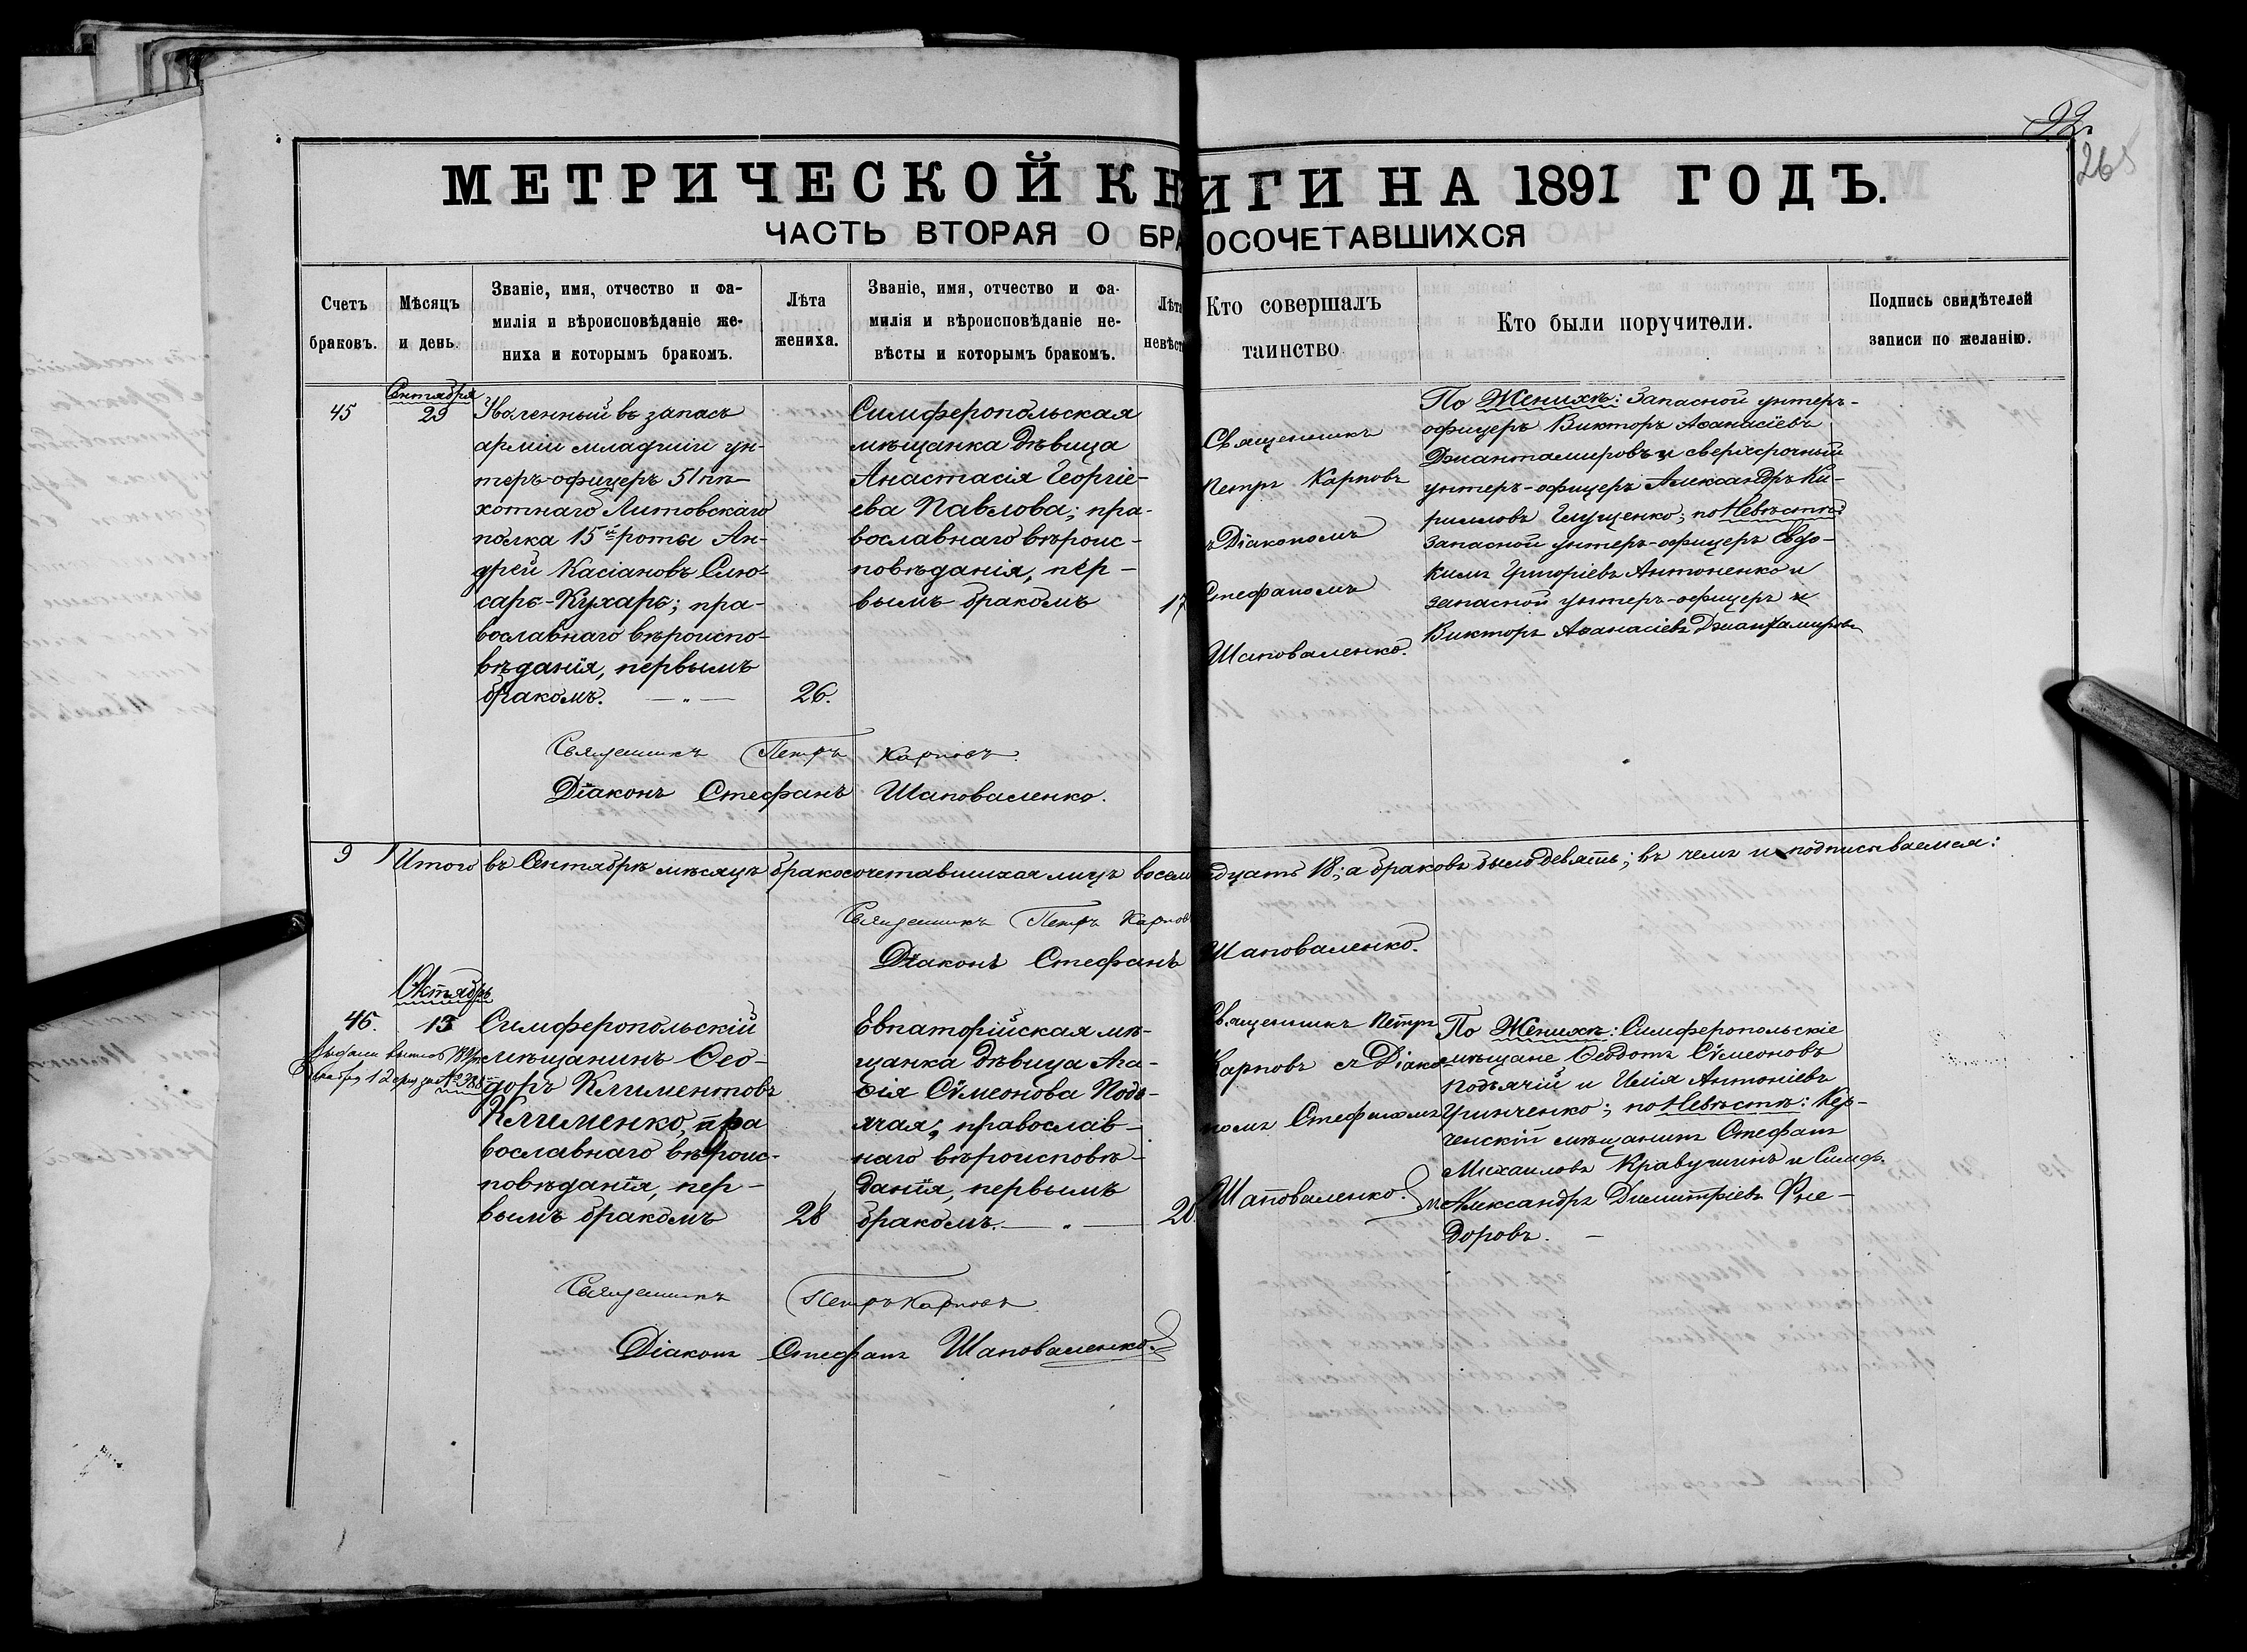 92.
265
МЕТРИЧЕСКОЙ КНИГИ НА 1891 ГОДЪ.
ЧАСТЬ ВТОРАЯ О БРАКОСОЧЕТАВШИХСЯ
Счетъ
браковъ.
Мѣсяцъ
и день.
Званіе, имя, отчество и фа-
милія и вѣроисповѣданіе же-
ниха и которымъ бракомъ.
Лѣта
жениха.
Званіе, имя, отчество и фа-
милія и вѣроисповѣданіе не-
вѣсты и которымъ бракомъ.
Лѣта
невѣст
Кто совершалъ
таинство
Кто были поручители.
Подпись свидѣтелей
записи по желанію.
45
Сентября
29
Уволенный въ запасъ
арміи младшій ун-
теръ-офицеръ 51 пѣ-
хотнаго Литовскаго
полка 15й роты Ан-
дрей Касіановъ Слю-
сарь-Кухарь; пра-
вославнаго вѣроиспо-
вѣданія, первымъ
бракомъ. — „ —
26.
Симферопольская
мѣщанка дѣвица
Анастасія Георгіе-
ева Павлова; пра-
вославнаго вѣроис-
повѣданія, пер-
вымъ бракомъ
17
Священникъ
Петръ Карповъ
съ Діакономъ
Стефаномъ
Шаповаленко.
По Женихѣ: Запасной унтеръ-
офицеръ Викторъ Аѳанасіевъ
Джантамировъ и сверхсрочный
унтеръ-офицеръ Александръ Ки-
рилловъ Глущенко; по Невѣстѣ:
запасной унтеръ-офицеръ Евдо-
кимъ Григоріевъ Антоненко и
запасной унтеръ-офицеръ
Викторъ Аѳанасіевъ Джантамировъ
Священникъ Петръ Карповъ.
Діаконъ Стефанъ Шаповаленко.
9
Итого въ Сентябрѣ мѣсяцѣ бракосочетавшихся лицъ восемнадцать 18; а браковъ было девять; въ чемъ и подписываемся:
Священникъ Петръ Карповъ
Діаконъ Стефанъ Шаповаленко.
Октябрь
46.
13
Симферопольскій
мѣщанинъ Ѳео-
доръ Климентовъ
Клименко, пра
вославнаго вѣроис-
повѣданія, пер-
вымъ бракомъ
28
Евпаторійская мѣ-
щанка дѣвица Ага-
ѳія Сѵмеонова Подъ-
ячая, православ-
наго вѣроисповѣ-
данія, первымъ
бракомъ. — „ —
20.
Священникъ Петръ
Карповъ съ Діако-
номъ Стефаномъ
Шаповаленко.
По Женихѣ: Симферопольскіе
мѣщане Ѳеодотъ Сѵмеоновъ
Подъячій и Илія Антоніевъ
Гринченко; по Невѣстѣ: Кер-
ченскій мѣщанинъ Стефанъ
Михаиловъ Кравучинъ и Симф.
м. Александръ Димитріевъ
доровъ. —
Священникъ Петръ Карповъ.
Діаконъ Стефанъ Шаповаленко.